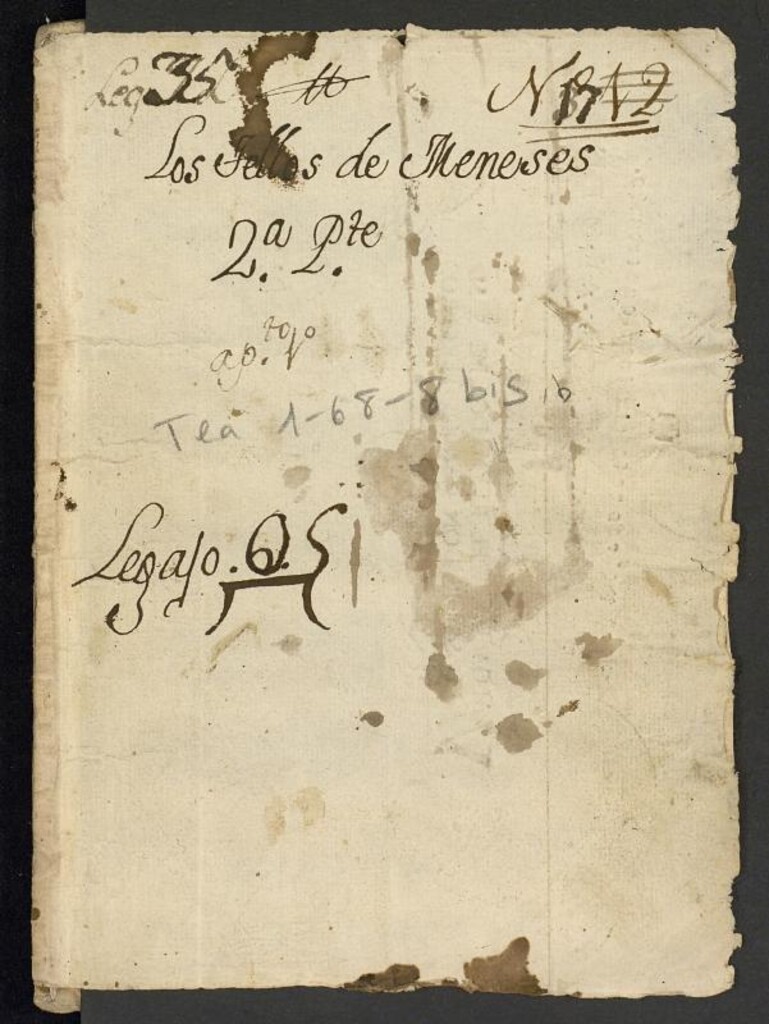 Leg 35 N 17
Los Tellos de Meneses
2.ª P.te
ap.to
Tea 1-68-8 bis, b
Legajo. 6.